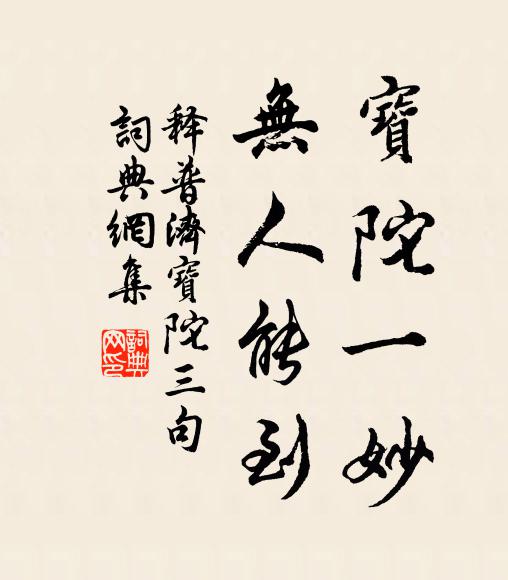 寶陀一妙
無人能到
释普濟寶陀三句
詞典網集
詞典
网印